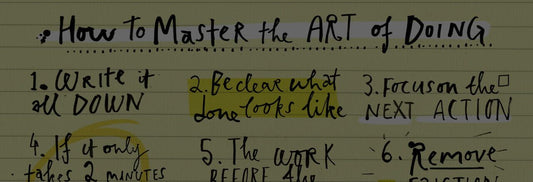 How To Master the ART of DOING
1. Write it all DOWN
2. Be clear what done looks like
3. Focus on the NEXT ACTION
4. If it only takes 2 MINUTES
5. The WORK BEFORE the
6. Remove FRICTION